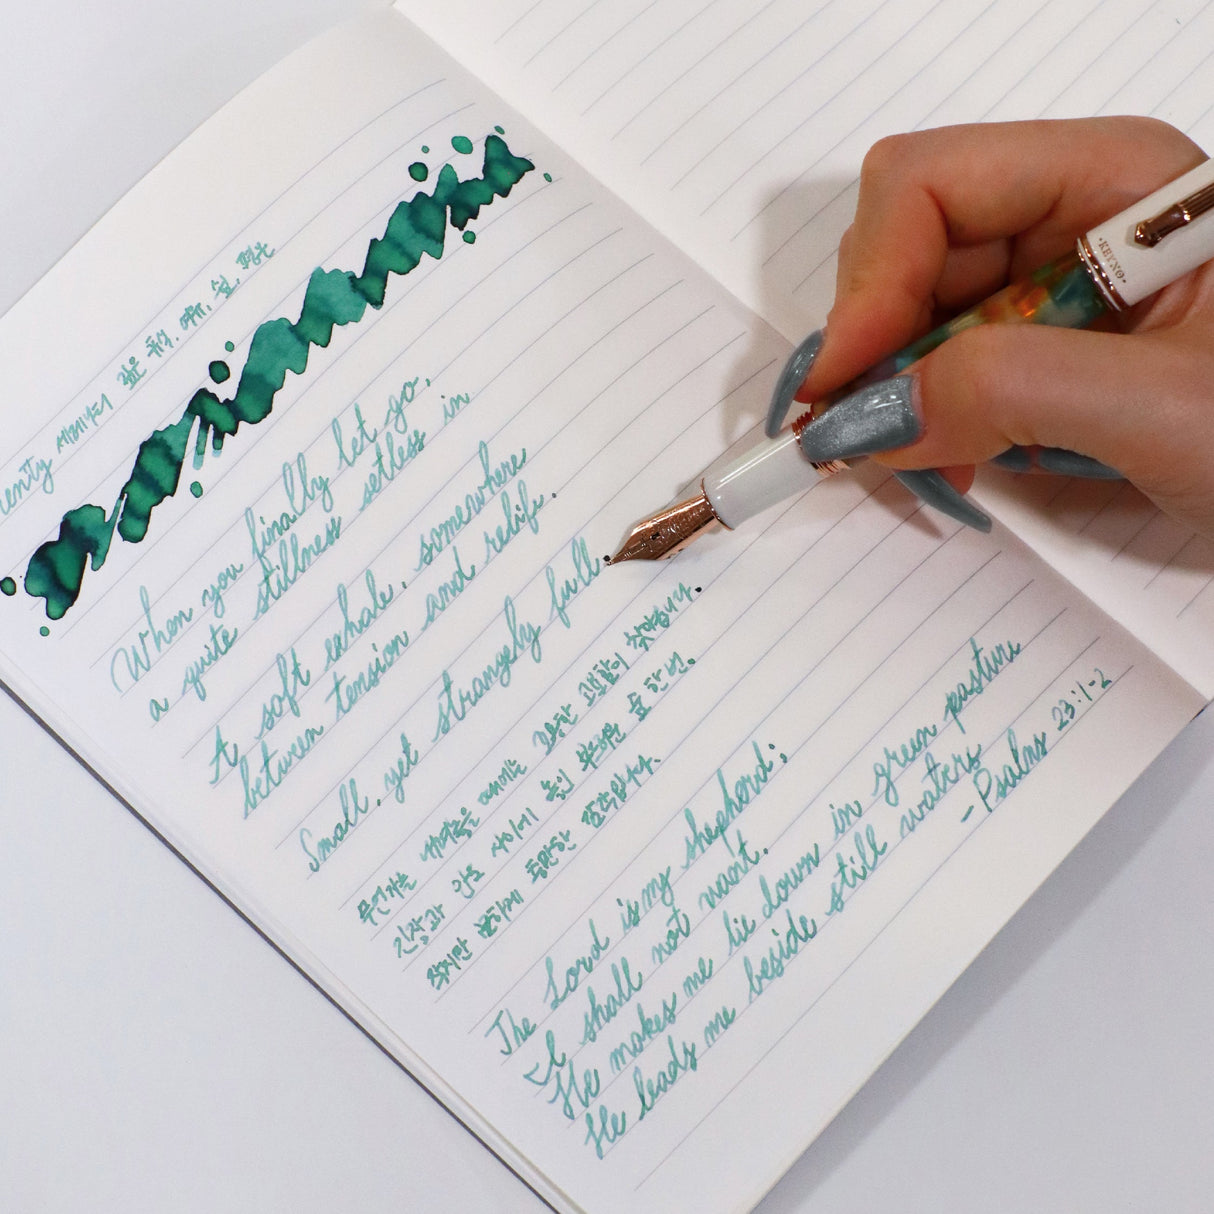 세레니티 깊은 휴식, 여유, 쉼, 평온
When you finally let go,
a quite stillness setless in
A soft exhale, somewhere
between tension and relife.
Small, yet strangely full.
무언가를 내려놓을 때에는 고요함이 찾아옵니다.
긴장과 안도 사이에 놓인 부드러운 숨 한 번.
작지만 묘하게 충만한 감각입니다.
The Lord is my shepherd;
I shall not want.
He makes me lie down in green pasture
He leads me beside still waters
-Psalms 23:1-2
KEYNO